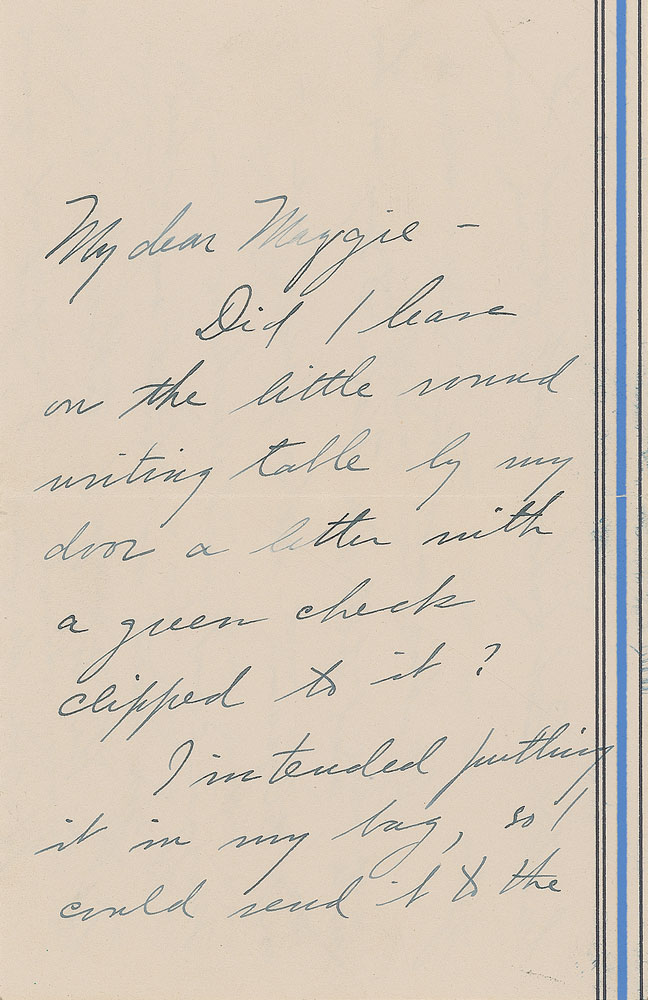 My dear Maggie -
Did I leave
on the little round
writing table by my
door a letter with
a green check
clipped to it?
I intended putting
it in my bag, so I
could send it to the